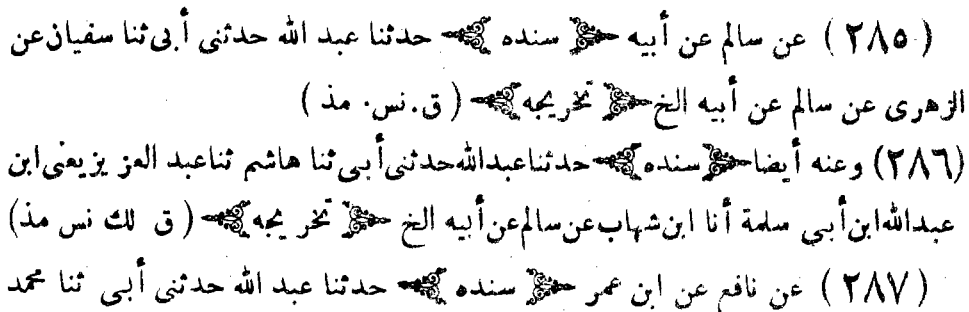 ( ٢٨٥ ) عن سالم عن أبيه ﴿ سنده ﴾ حدثنا عبد الله حدثنى أبى ثنا سفيان عن
الزهرى عن سالم عن أبيه الخ ﴿ تخريجه ﴾ ( ق . نس . مذ )
(٢٨٦) وعنه أيضا ﴿ سنده ﴾ حدثنا عبد الله حدثنى أبى ثنا هاشم ثنا عبد العزيز يعنى ابن
عبد الله ابن أبي سلمة أنا ابن شهاب عن سالم عن أبيه الخ ﴿ تخريجه ﴾ ( ق لك نس مذ )
( ٢٨٧ ) عن نافع عن ابن عمر ﴿ سنده ﴾ حدثنا عبد الله حدثنى أبى ثنا محمد